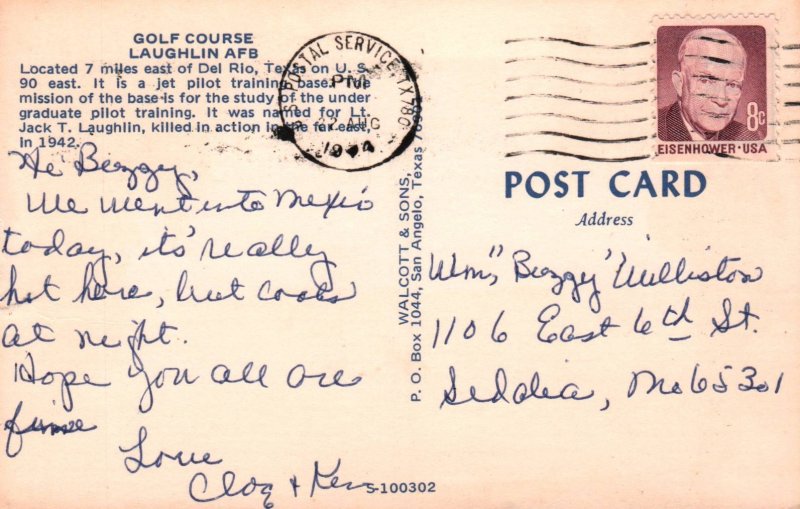 GOLF COURSE
LAUGHLIN AFB
Located 7 miles east of Del Rio, Texas on U. S.
90 east. It is a jet pilot training base. The
mission of the base is for the study of the under
graduate pilot training. It was named for Lt.
Jack T. Laughlin, killed in action in the far east,
in 1942.
Hi Buzzy,
We went into Mexico
today, it's really
hot here, but cools
at night.
Hope you all are
fine
Love
+ Ken
S-100302
WALCOTT & SONS,
P. O. Box 1044, San Angelo, Texas
POSTAL SERVICE TX 780
PM
AUG
1974
EISENHOWER·USA
8c
POST CARD
Address
Wm, "Buzzy" Williston
1106 East 6th St.
Sedalia, Mo 65301